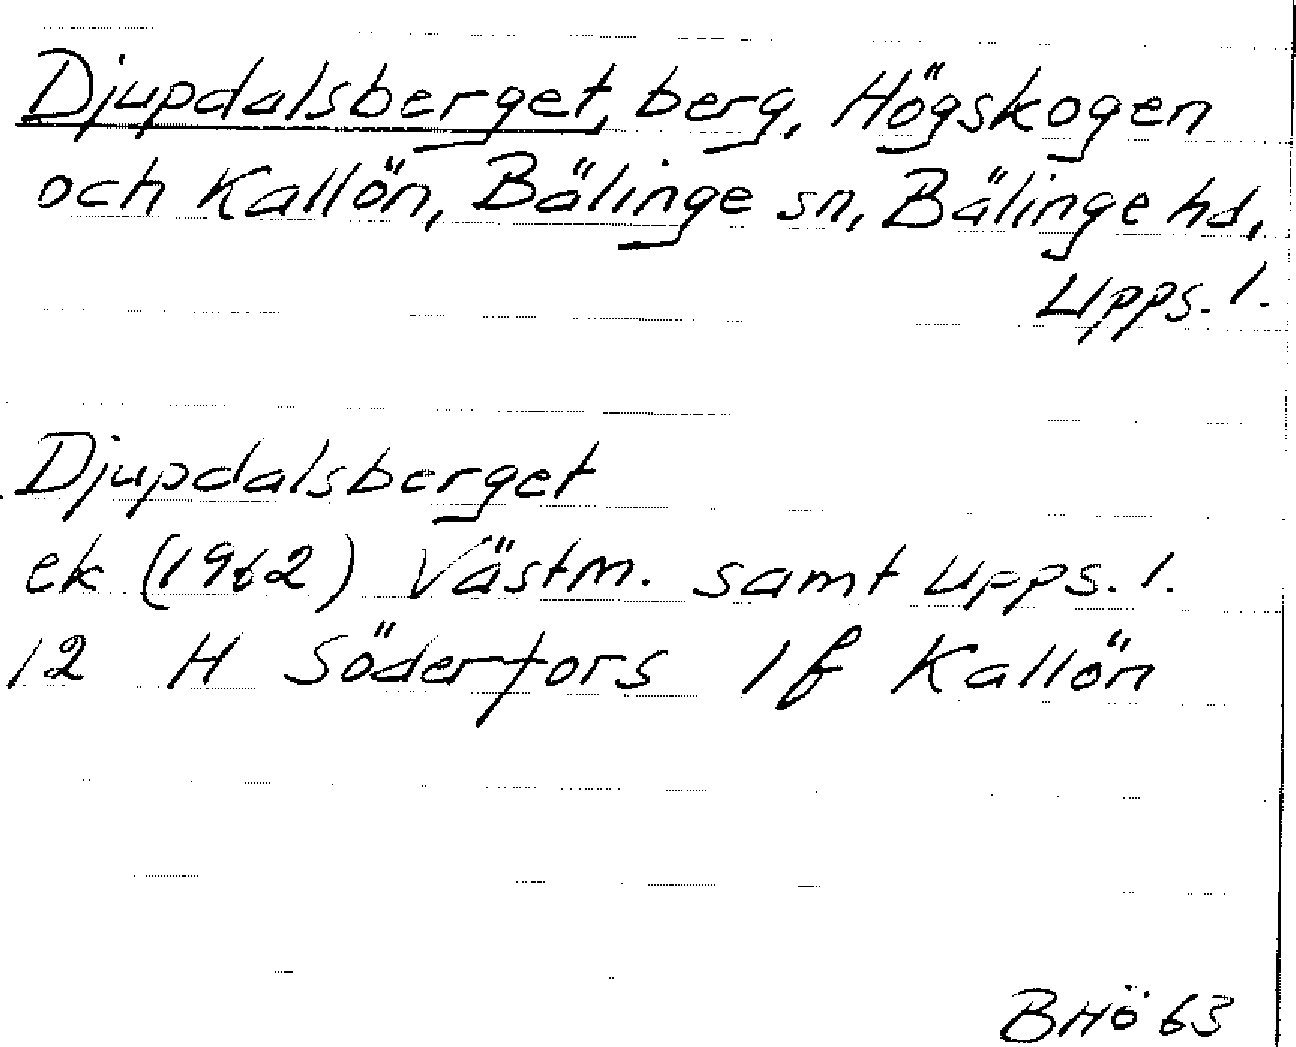 Djupdalsberget, berg, Högskogen
och Kallön, Bälinge sn, Bälinge hd,
Upps. l.
Djupdalsberget
ek (1962) Västm. samt Upps. l.
12 H Söderfors 1f Kallön
BHö 63